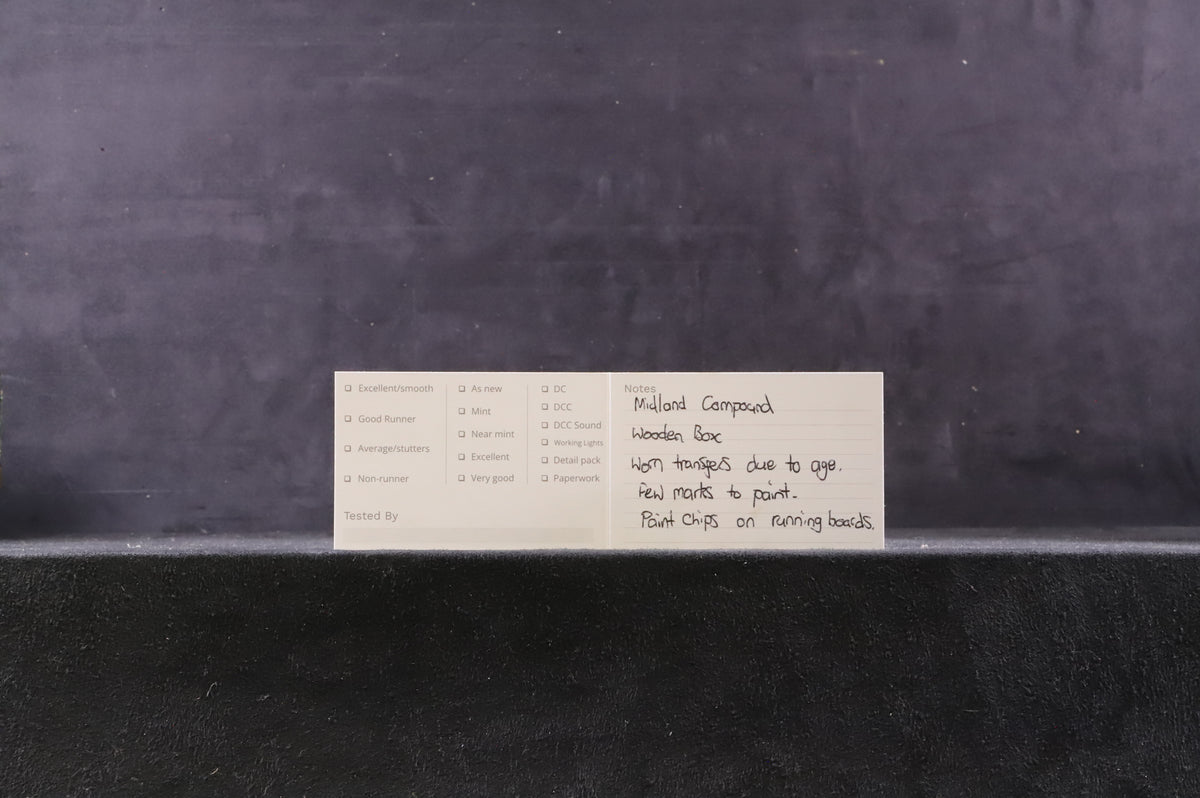 Excellent/smooth
Good Runner
Average/stutters
Non-runner
As new
Mint
Near mint
Excellent
Very good
DC
DCC
DCC Sound
Working Lights
Detail pack
Paperwork
Tested By
Notes
Midland Compound
Wooden Box
Worn transfers due to age.
Few marks to paint.
Paint chips on running boards.